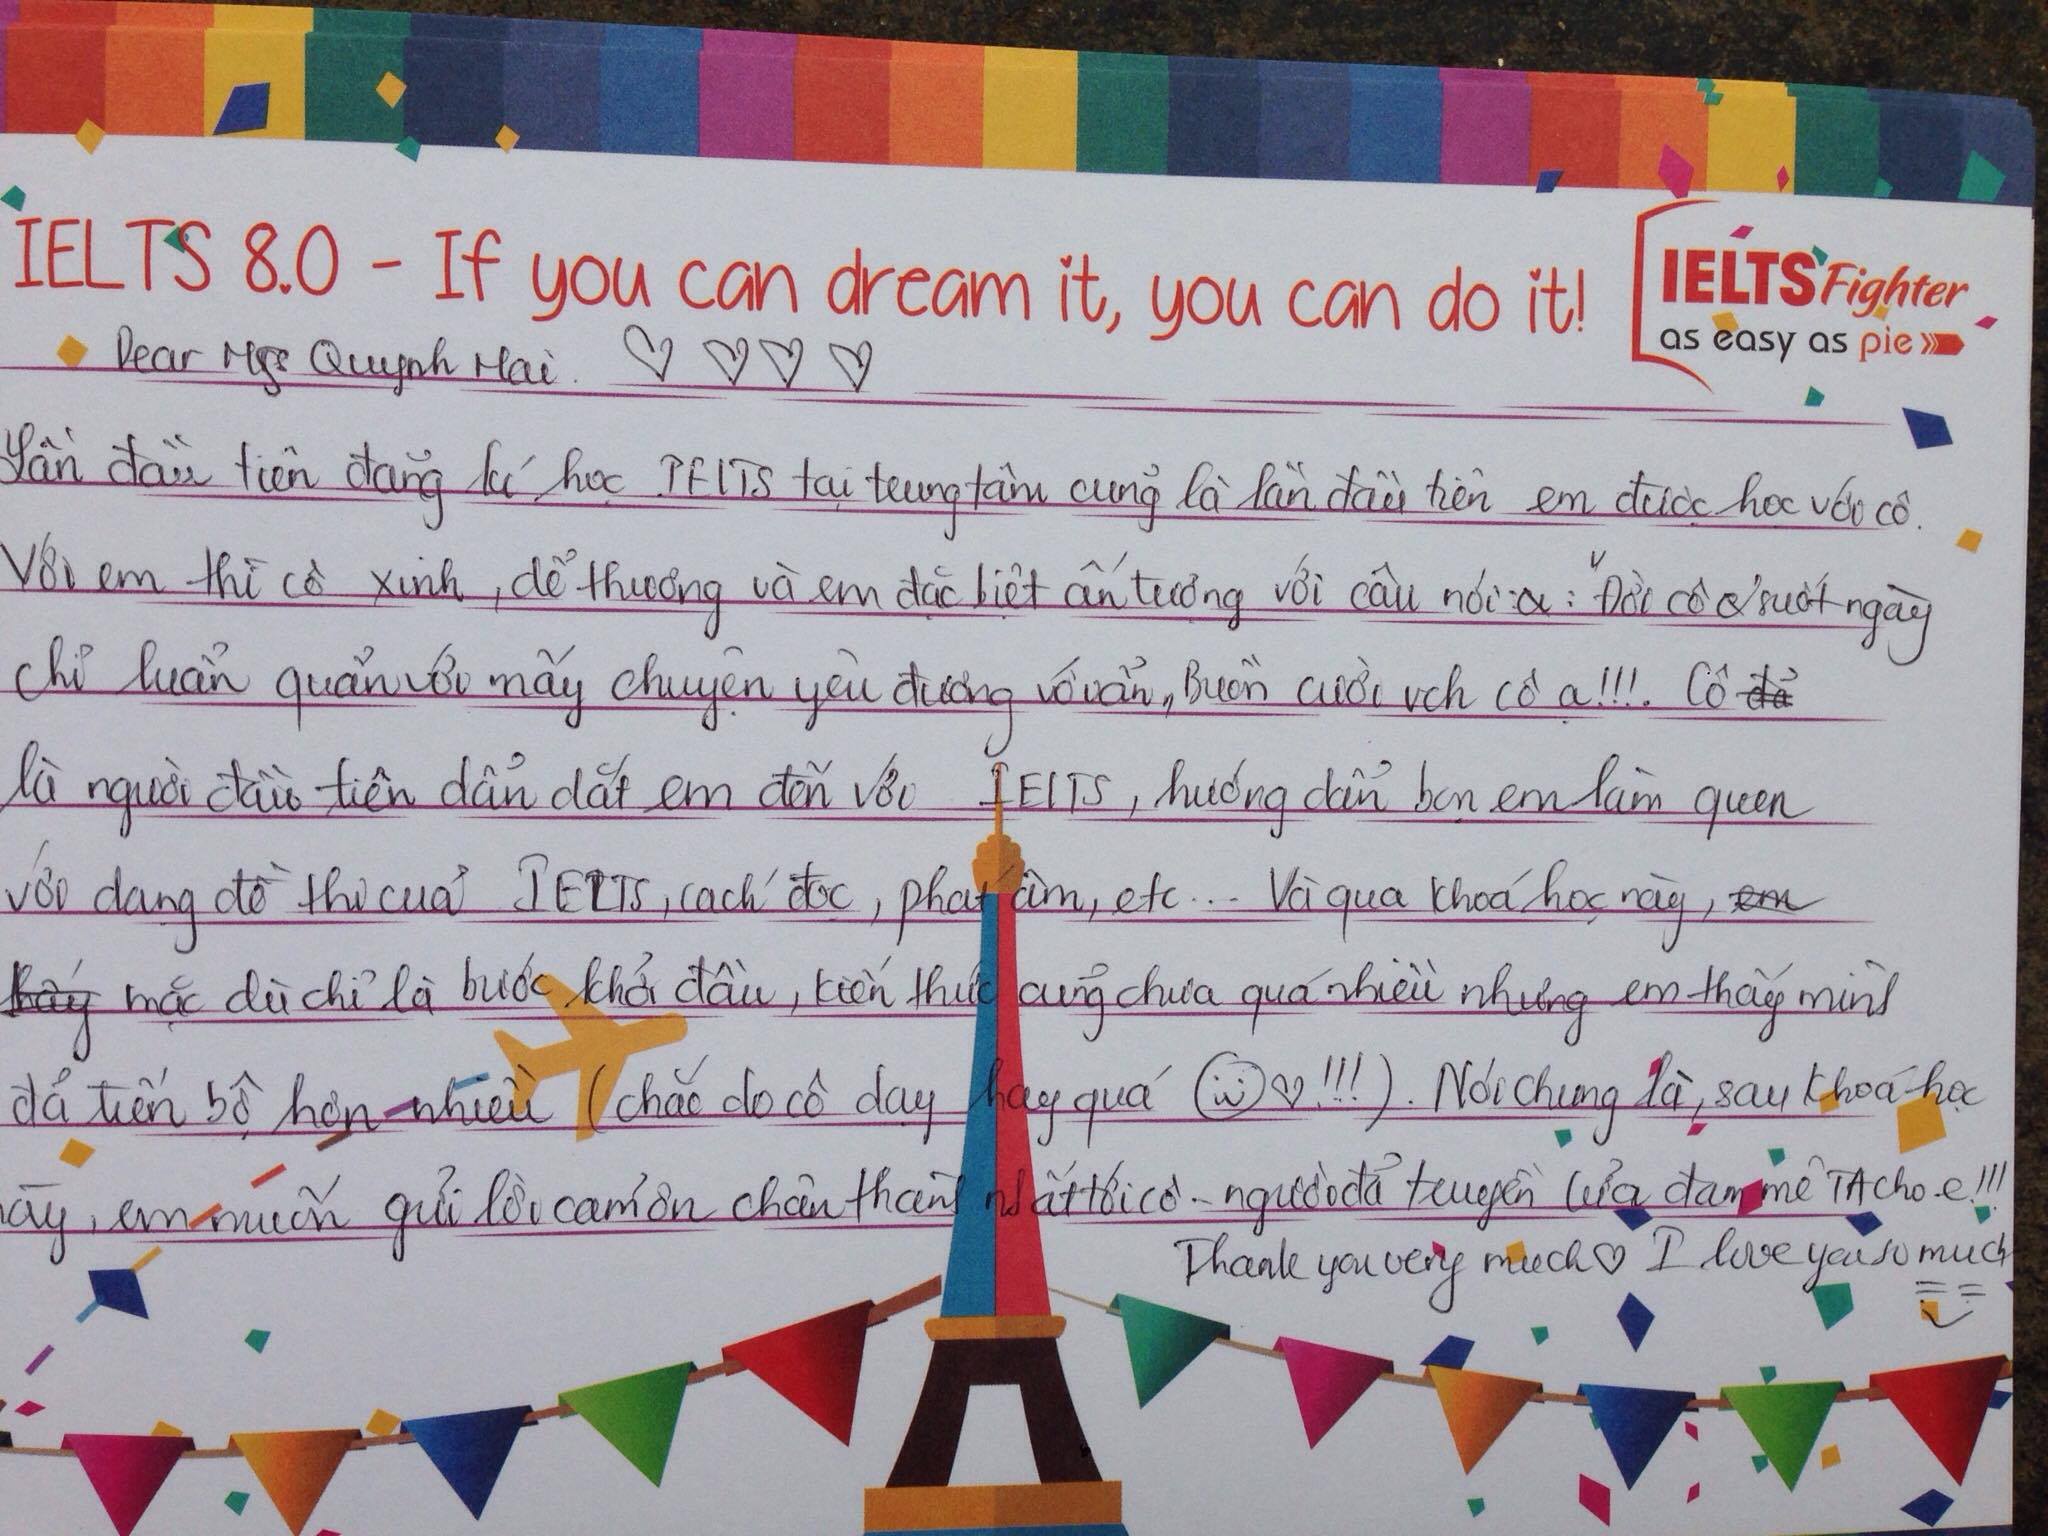 IELTS 8.0 - If you can dream it, you can do it!
IELTS Fighter
as easy as pie
Dear Mss Quỳnh Mai. ♡ ♡ ♡ ♡
Lần đầu tiên đăng kí học IELTS tại trung tâm cũng là lần đầu tiên em được học với cô.
Với em thì cô xinh, dễ thương và em đặc biệt ấn tượng với câu nói: "Đời cô í suốt ngày
chỉ luẩn quẩn với mấy chuyện yêu đương vớ vẩn", Buồn cười vch cô ạ!!!. Cô đã
là người đầu tiên dẫn dắt em đến với IELTS, hướng dẫn bọn em làm quen
với dạng đề thi của IELTS, cách đọc, phát âm, etc... Và qua khoá học này, em
thấy mặc dù chỉ là bước khởi đầu, kiến thức cũng chưa quá nhiều nhưng em thấy mình
đã tiến bộ hơn nhiều (chắc do cô dạy hay quá ♡!!!). Nói chung là, sau khoá học
này, em muốn gửi lời cảm ơn chân thành nhất tới cô - người đã truyền lửa đam mê TA cho e!!!
Thank you very much ♡ I love you so much